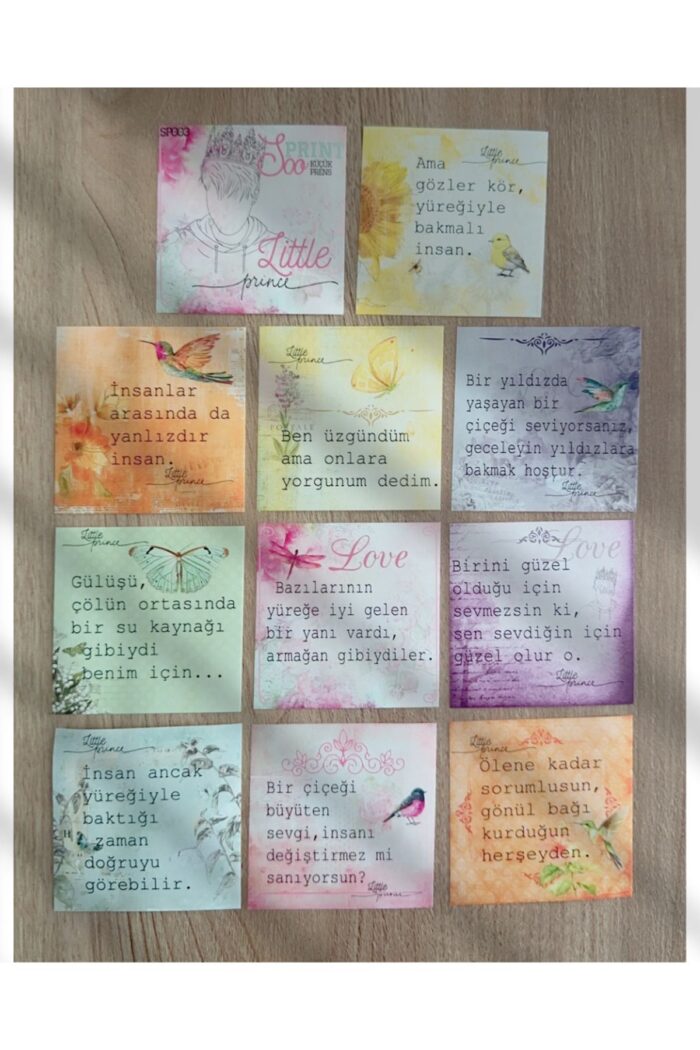 SP003
SooPRINT
KÜÇÜK
PRENS
Little
prince
Little
prince
Ama
gözler kör,
yüreğiyle
bakmalı
insan.
İnsanlar
arasında da
yanlızdır
insan.
Little
prince
Little
prince
Ben üzgündüm
ama onlara
yorgunum dedim.
Bir yıldızda
yaşayan bir
çiçeği seviyorsanız,
geceleyin yıldızlara
bakmak hoştur.
Little
prince
Little
prince
Gülüşü,
çölün ortasında
bir su kaynağı
gibiydi
benim için...
Love
Bazılarının
yüreğe iyi gelen
bir yanı vardı,
armağan gibiydiler.
Love
Birini güzel
olduğu için
sevmezsin ki,
sen sevdiğin için
güzel olur o.
Little
prince
Little
prince
İnsan ancak
yüreğiyle
baktığı
zaman
doğruyu
görebilir.
Bir çiçeği
büyüten
sevgi,insanı
değiştirmez mi
sanıyorsun?
Little
prince
Little
prince
Ölene kadar
sorumlusun,
gönül bağı
kurduğun
herşeyden.